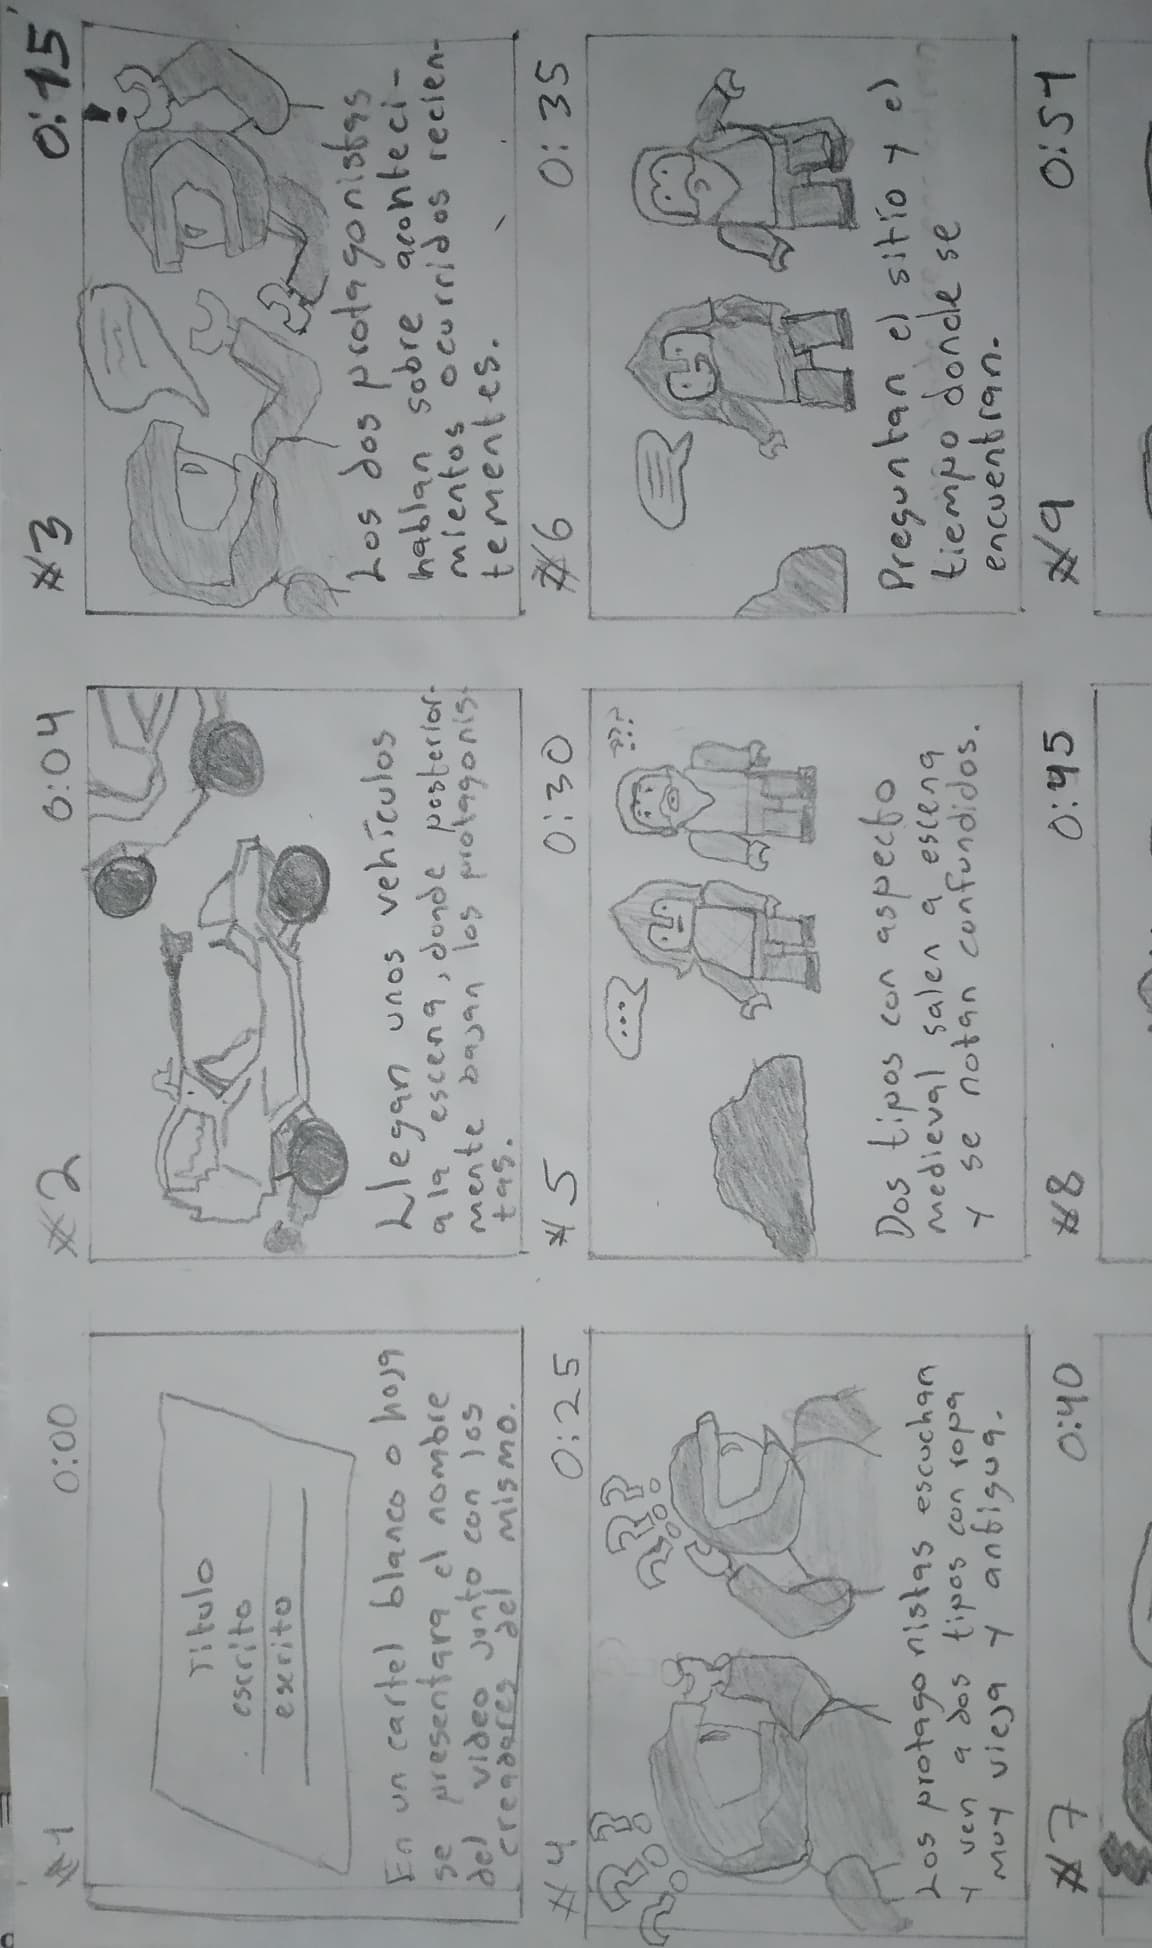 #1 0:00
Titulo
escrito
escrito
En un cartel blanco o hoja
se presentara el nombre
del video junto con los
creadores del mismo.
#2 0:04
Llegan unos vehículos
a la escena, donde posterior-
mente bajan los protagonis-
tas.
#3 0:15
!
Los dos protagonistas
hablan sobre aconteci-
mientos ocurridos recien-
temente.
#4 0:25
???
???
Los protagonistas escuchan
y ven a dos tipos con ropa
muy vieja y antigua.
#5 0:30
...
???
Dos tipos con aspecto
medieval salen a escena
y se notan confundidos.
#6 0:35
Preguntan el sitio y el
tiempo donde se
encuentran.
#7 0:40
#8 0:45
#9 0:51